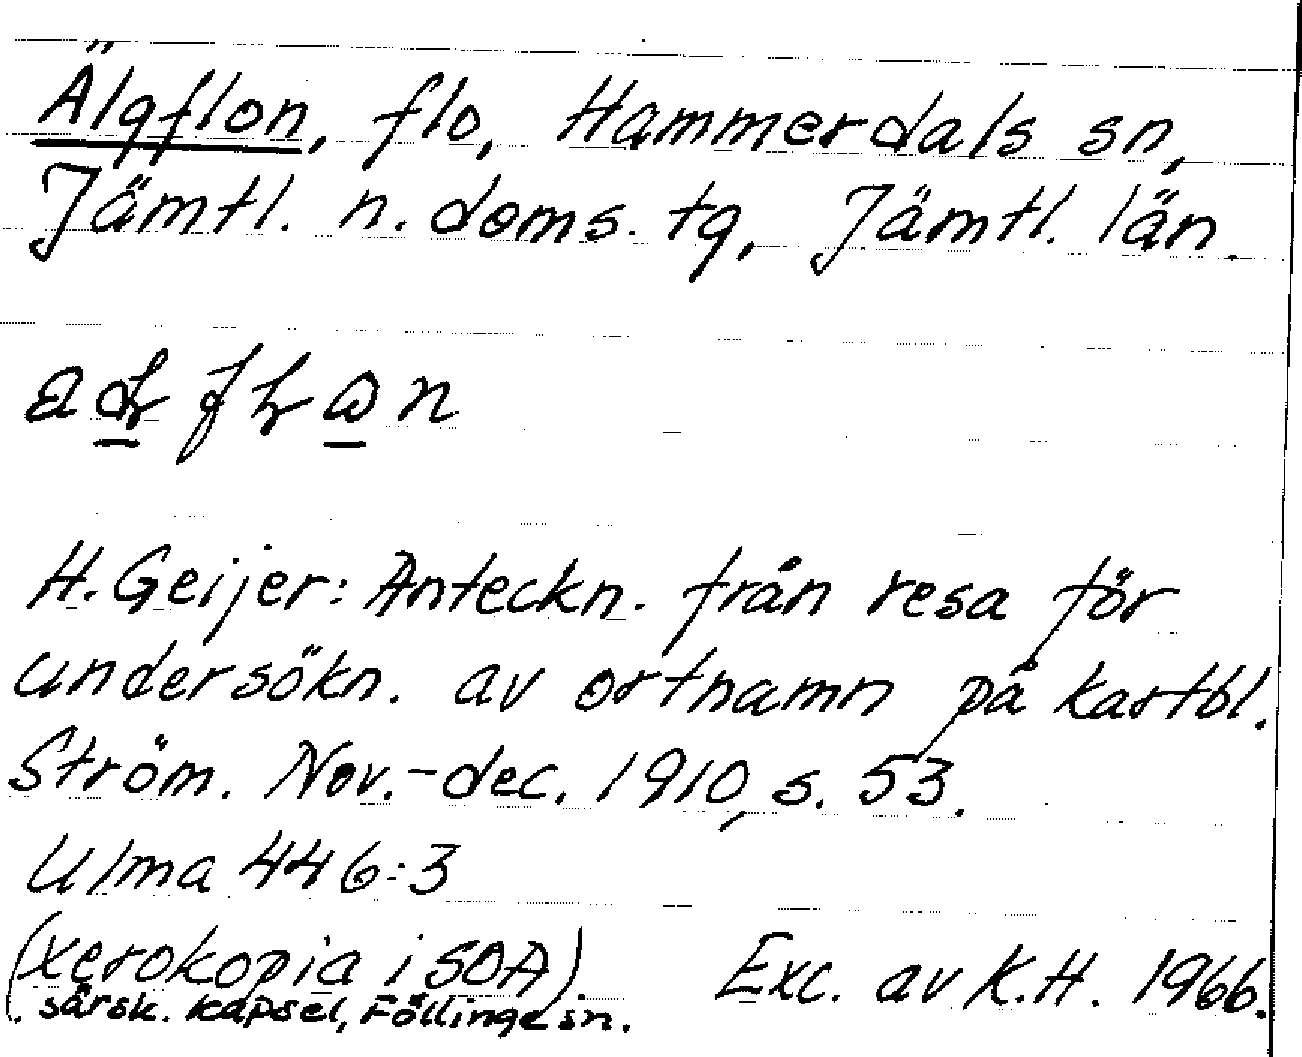 Älgflon, flo, Hammerdals sn,
Jämtl. n. doms. tg, Jämtl. län.
H. Geijer: Anteckn. från resa för
undersökn. av ortnamn på kartbl.
Ström. Nov.-dec. 1910, s. 53.
Ulma 446:3
(xerokopia i SOA).
särsk. kapsel, Föllinge sn.
Exc. av K.H. 1966.